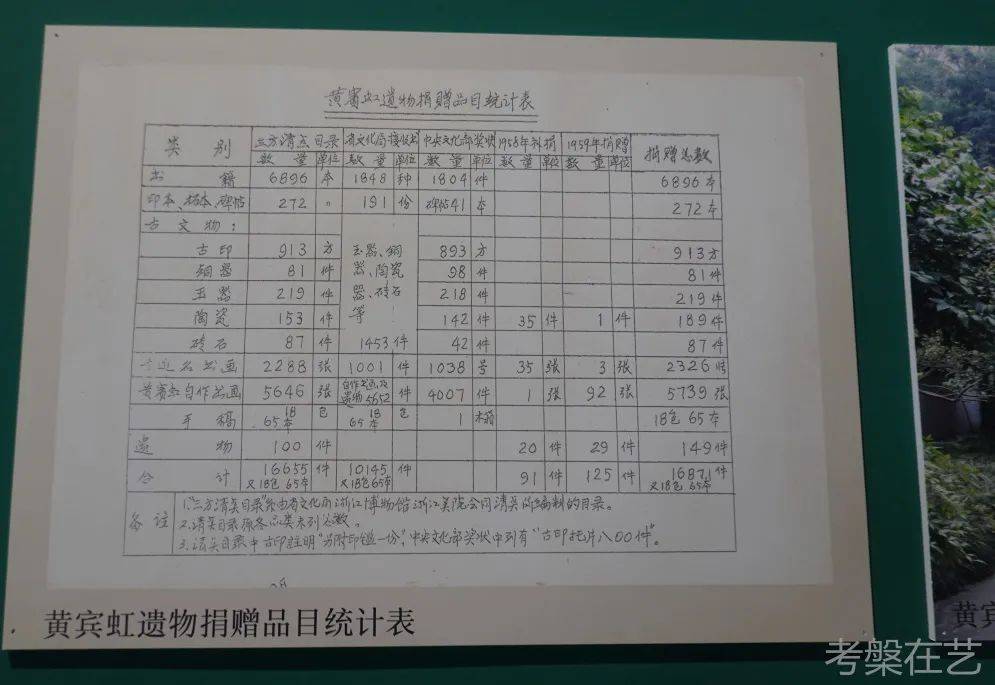 黄賓虹遗物捐赠品目统计表
类别 三方清点目录 省文化局接收出 中央文化部奖状 1958年补捐 1959年捐赠 捐赠总数
数量 单位 数量 单位 数量 单位 数量 单位 数量 单位
书籍 6896 本 1848 种 1804 件 6896本
印本、拓本、碑帖 272 〃 191 份 碑帖41 本 272本
古文物：
古印 913 方 玉器、铜 893 方 913方
铜器 81 件 器、陶瓷 98 件 81件
玉器 219 件 器、砖石 218 件 219件
陶瓷 153 件 等 142 件 35 件 1 件 189件
砖石 87 件 1453 件 42 件 87件
书画 2288 张 1001 件 1038 号 35 张 3 张 2326
黄賓虹自作书画 5646 张 自作书画及遗物5652 件 4007 件 1 张 92 张 5739张
手稿 18包 65本 18包 65本 1 木箱 18包65本
遗物 100 件 20 件 29 件 149件
合计 16655件 又18包65本 10145件 又18包65本 91 件 125 件 16871件 又18包65本
备注 1."三方清点目录"系由省文化局浙江博物馆浙江美院会同清点所编制的目录。
2.清点目录原各品类未列总数。
3.清点目录中古印註明"另附印鑑一份"，中央文化部奖状中列有"古印托片八00件"。
黄宾虹遗物捐赠品目统计表
黄宾
考槃在艺